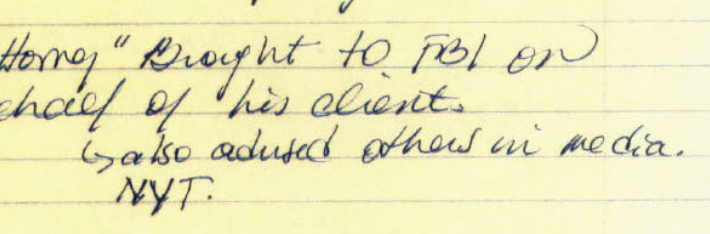 ttorney" Brought to FBI on
ehalf of his client.
↳ also advised others in media.
NYT.